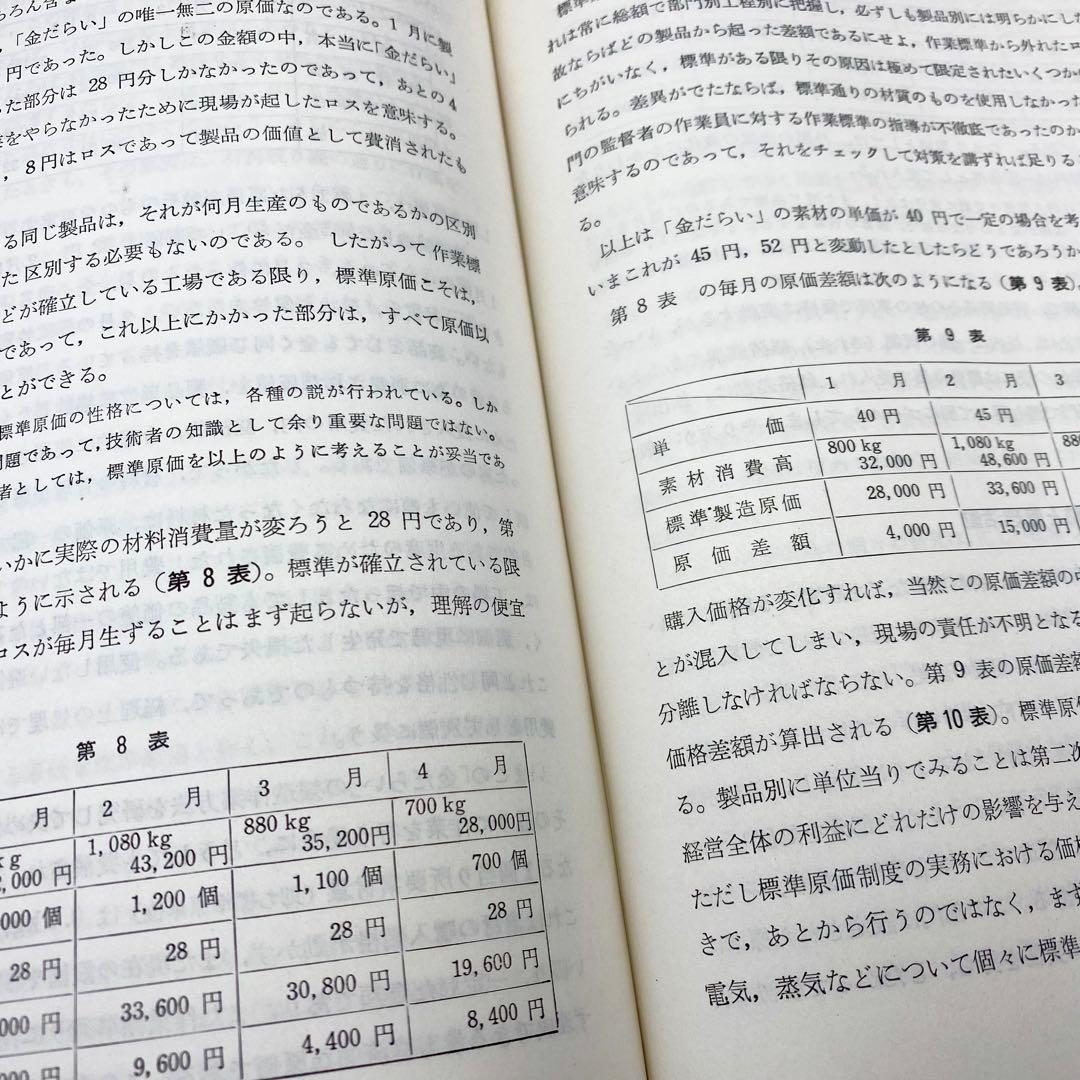 「金だらい」の唯一無二の原価なのである。1 月に製
円であった。しかしこの金額の中，本当に「金だらい」
た部分は 28 円分しかなかったのであって，あとの 4
をやらなかったために現場が起したロスを意味する。
，8円はロスであって製品の価値として費消されたも
る同じ製品は，それが何月生産のものであるかの区別
た区別する必要もないのである。 したがって 作業標
どが確立している工場である限り，標準原価こそは，
であって，これ以上にかかった部分は，すべて原価以
とができる。
標準原価の性格については，各種の説が行われている。しか
問題であって，技術者の知識として余り重要な問題ではない。
者としては，標準原価を以上のように考えることが妥当であ
いかに実際の材料消費量が変ろうと 28 円であり，第
ように示される（第 8 表）。標準が確立されている限
ロスが毎月生ずることはまず起らないが，理解の便宜
第 8 表
月 2 月 3 月 4 月
kg 1,080 kg 880 kg 700 kg
2,000 円 43,200 円 35,200円 28,000円
000 個 1,200 個 1,100 個 700 個
28 円 28 円 28 円 28 円
000 円 33,600 円 30,800 円 19,600 円
000 円 9,600 円 4,400 円 8,400 円
れは常に総額で部門別工程別に把握し，必ずしも製品別には明らかにした
故ならばどの製品から起った差額であるにせよ，作業標準から外れたロ
にちがいなく，標準がある限りその原因は極めて限定されたいくつか
られる。差異がでたならば，標準通りの材質のものを使用しなかった
門の監督者の作業員に対する作業標準の指導が不徹底であったのか
意味するのであって，それをチェックして対策を講ずれば足りる
る。
以上は「金だらい」の素材の単価が 40 円で一定の場合を考
いまこれが 45 円，52 円と変動したとしたらどうであろうか
第 8 表 の毎月の原価差額は次のようになる（第 9 表）。
第 9 表
1 月 2 月 3
単 価 40 円 45 円
素材消費高 800 kg 1,080 kg 88
32,000 円 48,600 円
標準製造原価 28,000 円 33,600 円
原 価 差 額 4,000 円 15,000 円
購入価格が変化すれば，当然この原価差額の中
とが混入してしまい，現場の責任が不明となる
分離しなければならない。第 9 表の原価差額
価格差額が算出される（第10表）。標準原価
る。製品別に単位当りでみることは第二次
経営全体の利益にどれだけの影響を与え
ただし標準原価制度の実務における価格
きで，あとから行うのではなく，まず
電気，蒸気などについて個々に標準